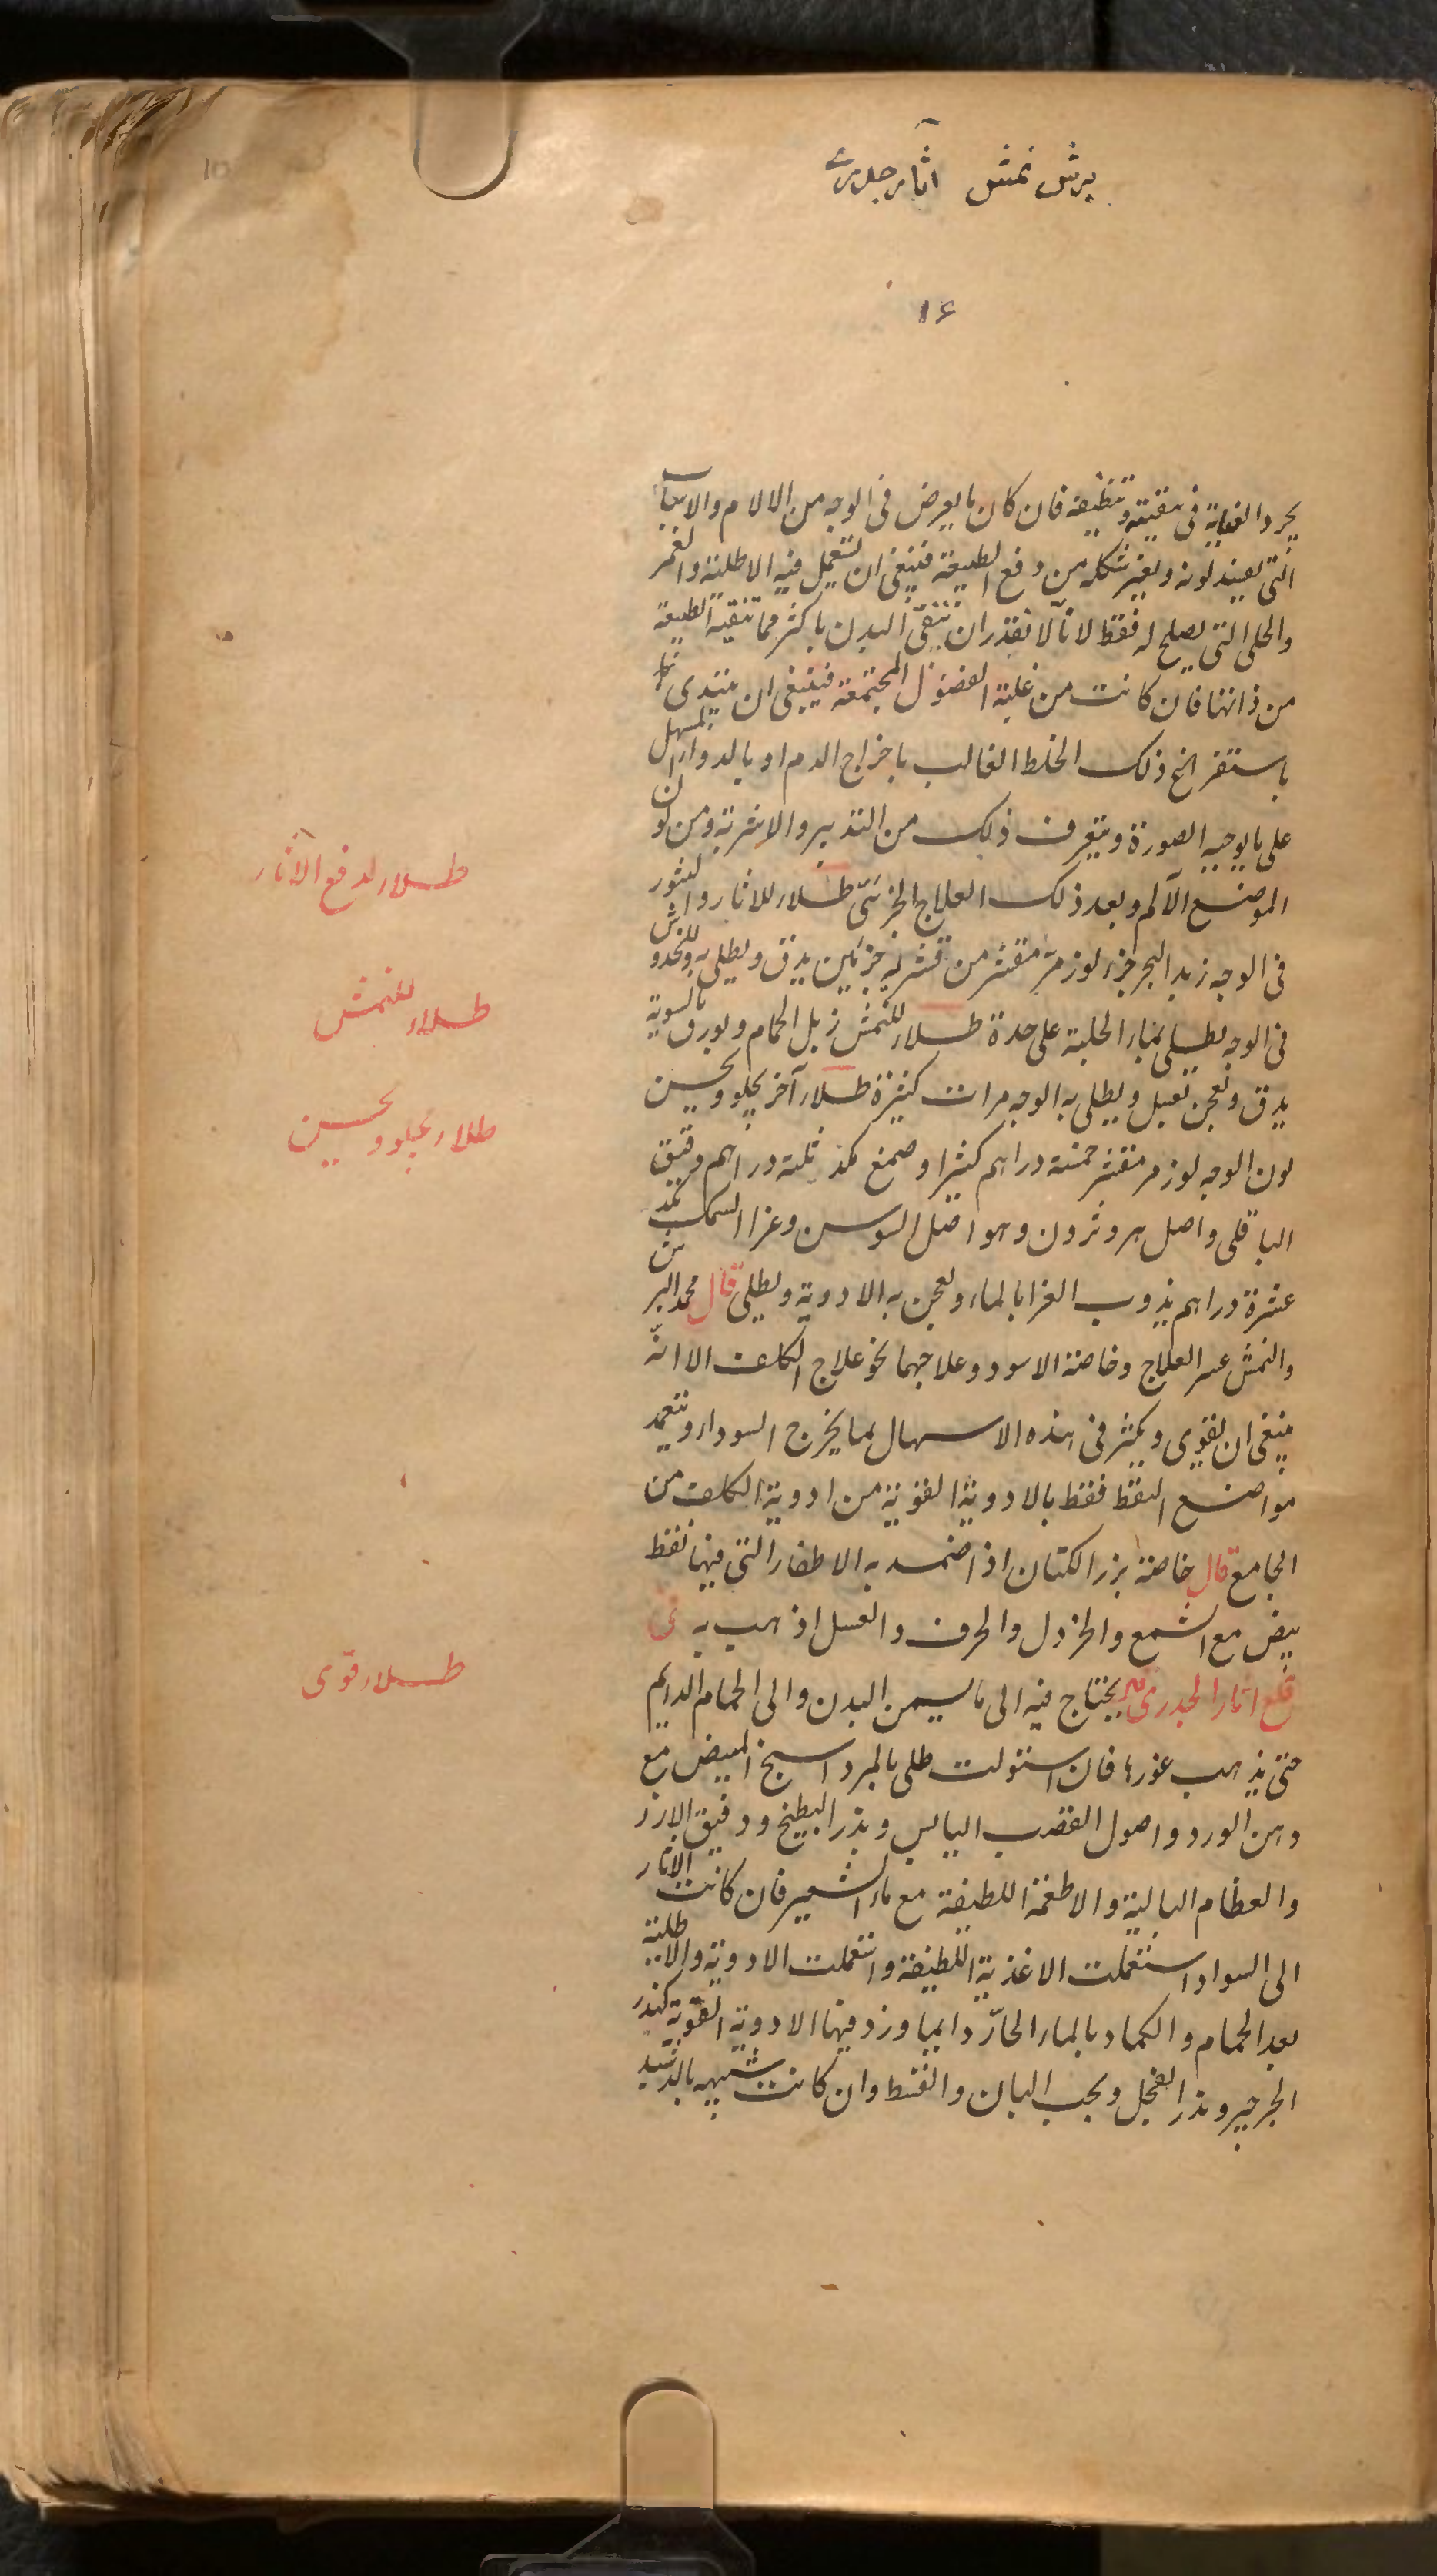 برش نمش آثار جلدی
۱۶
يجرد العناية فى تنقيته وتنظيفه فان كان ما يعرض فى الوجه من الالام والاسباب
التى يفسد لونه ويغير شكله من دفع الطبيعة فينبغى ان تستعمل فيه الاطلية والغمر
والحلى التى يصلح له فقط لانا لا نقدر ان ننقى البدن باكثر مما تنقيه الطبيعة
من ذاتها فان كانت من غلبة الفضول المجتمعة فينبغى ان يبتدى
باستفراغ ذلك الخلط الغالب باخراج الدم او بالدواء المسهل
على ما يوجبه الصورة ويتعرف ذلك من التدبير والاشربة ومن لون
الموضع الآلم وبعد ذلك العلاج الجزئى طلاء للاثار والبثور
فى الوجه زبد البحر جزء لوز مر مقشر من قشريه جزئين يدق ويطلى به وللخدوش
فى الوجه يطلى بماء الحلبة على حدة طلاء للنمش زبل الحمام وبورق بالسوية
يدق ويعجن بعسل ويطلى به الوجه مرات كثيرة طلاء آخر يجلو ويحسن
لون الوجه لوز مر مقشر خمسة دراهم كثيرا وصمغ مكد ثلثة دراهم دقيق
الباقلى واصل هروثرون وهو اصل السوسن وغرا السمك مكد
عشرة دراهم يذوب الغرا بالماء ويعجن به الادوية ويطلى قال محمد البرش
والنمش عسر العلاج وخاصة الاسود وعلاجهما نحو علاج الكلف الا انه
ينبغى ان يقوى ويكثر فى هذه الاسهال بما يخرج السوداء وتتعمد
مواضع النقط فقط بالادوية القوية من ادوية الكلف من
الجامع قال خاصة بزر الكتان اذا ضمد به الاظفار التى فيها نقط
بيض مع الشمع والخردل والحرف والعسل اذهب به فى
قلع اثار الجدرى يحتاج فيه الى ما يسمن البدن والى الحمام الدايم
حتى يذهب غورها فان استولت طلى بالمرداسنج المبيض مع
دهن الورد واصول القصب اليابس وبزر البطيخ ودقيق الارز
والعظام البالية والاطعمة اللطيفة مع ماء الشعير فان كانت الاثار
الى السواد استعملت الاغذية اللطيفة واستعملت الادوية والاطلية
بعد الحمام والكماد بالماء الحار دايما وزد فيها الادوية القوية كبزر
الجرجير وبزر الفجل وبحب البان والقسط وان كانت شبيهه بالدشبد
طلاء لدفع الآثار
طلاء للنمش
طلاء يجلو ويحسن
طلاء قوى